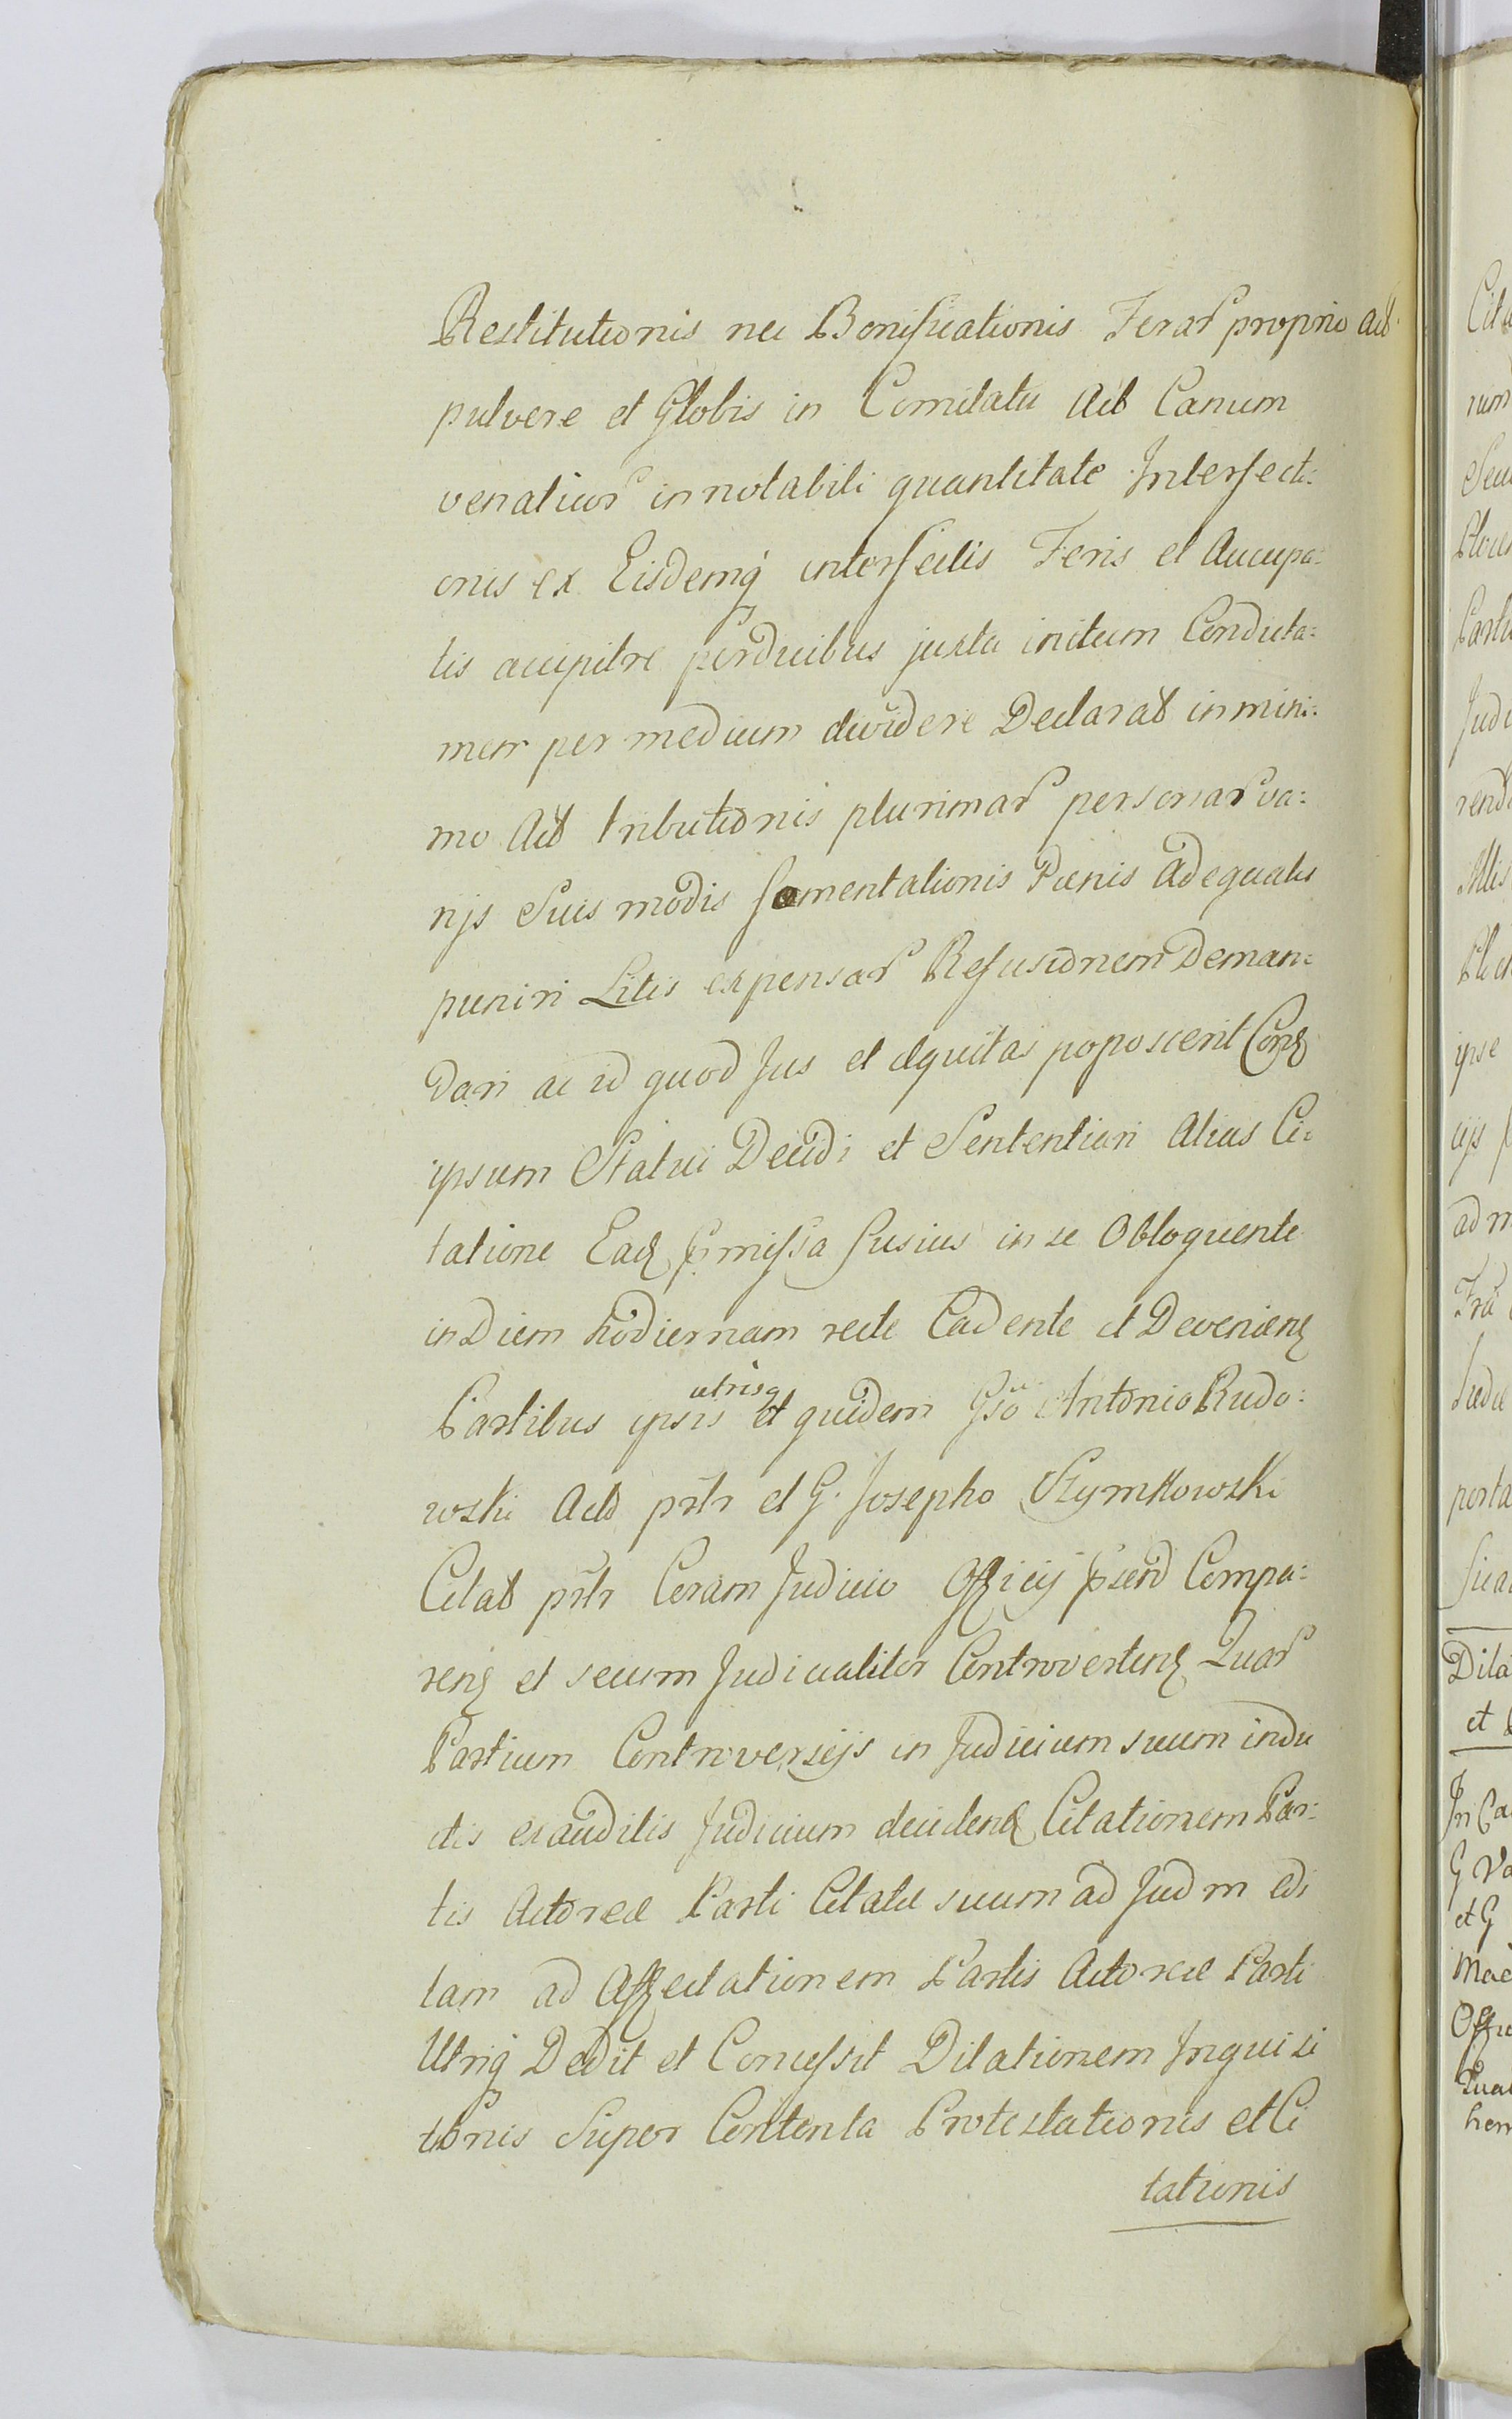 Restitutionis nec Bonificationis Ferar proprio Act
pulvere et Globis in Comitatu Act Canum
venaticor in notabili quantitate Interfecti:
onis ex Eisdemq interfectis Feris et Aucupa:
tis accipitre perdricibus juxta initum Conducta:
men per medium dividere Declarat in mini:
mo Act tributionis plurimar personar va:
rijs Suis modis fomentationis Pænis Adequatis
puniri Litis expensar Refusionem Deman:
dari ac id quod Jus et Æquitas poposcerit Conq
ipsum Statui Decidi et Sententiari Alias Ci:
tatione Eaq pmissa fusius in se Obloquente
in Diem hodiernam recte Cadente et Devenienq
Partibus ipsis utrisq et quidem Gso Antonio Rudo:
wski Act pstr et G. Josepho Szymkowski
Citat pstr Coram Judicio Officij psend Compa:
renq et secum Judicialiter Controvertenq Quar
Partium Controversijs in Judicium suum indu
ctis exauditis Judicium decidenq Citationem Par:
tis Actoreæ Parti Citatæ suum ad Judm edi
tam ad Affectationem Partis Actoreæ Parti
Utriq Dedit et Concessit Dilationem Inquisi
tionis Super Contenta Protestationis et Ci
tationis